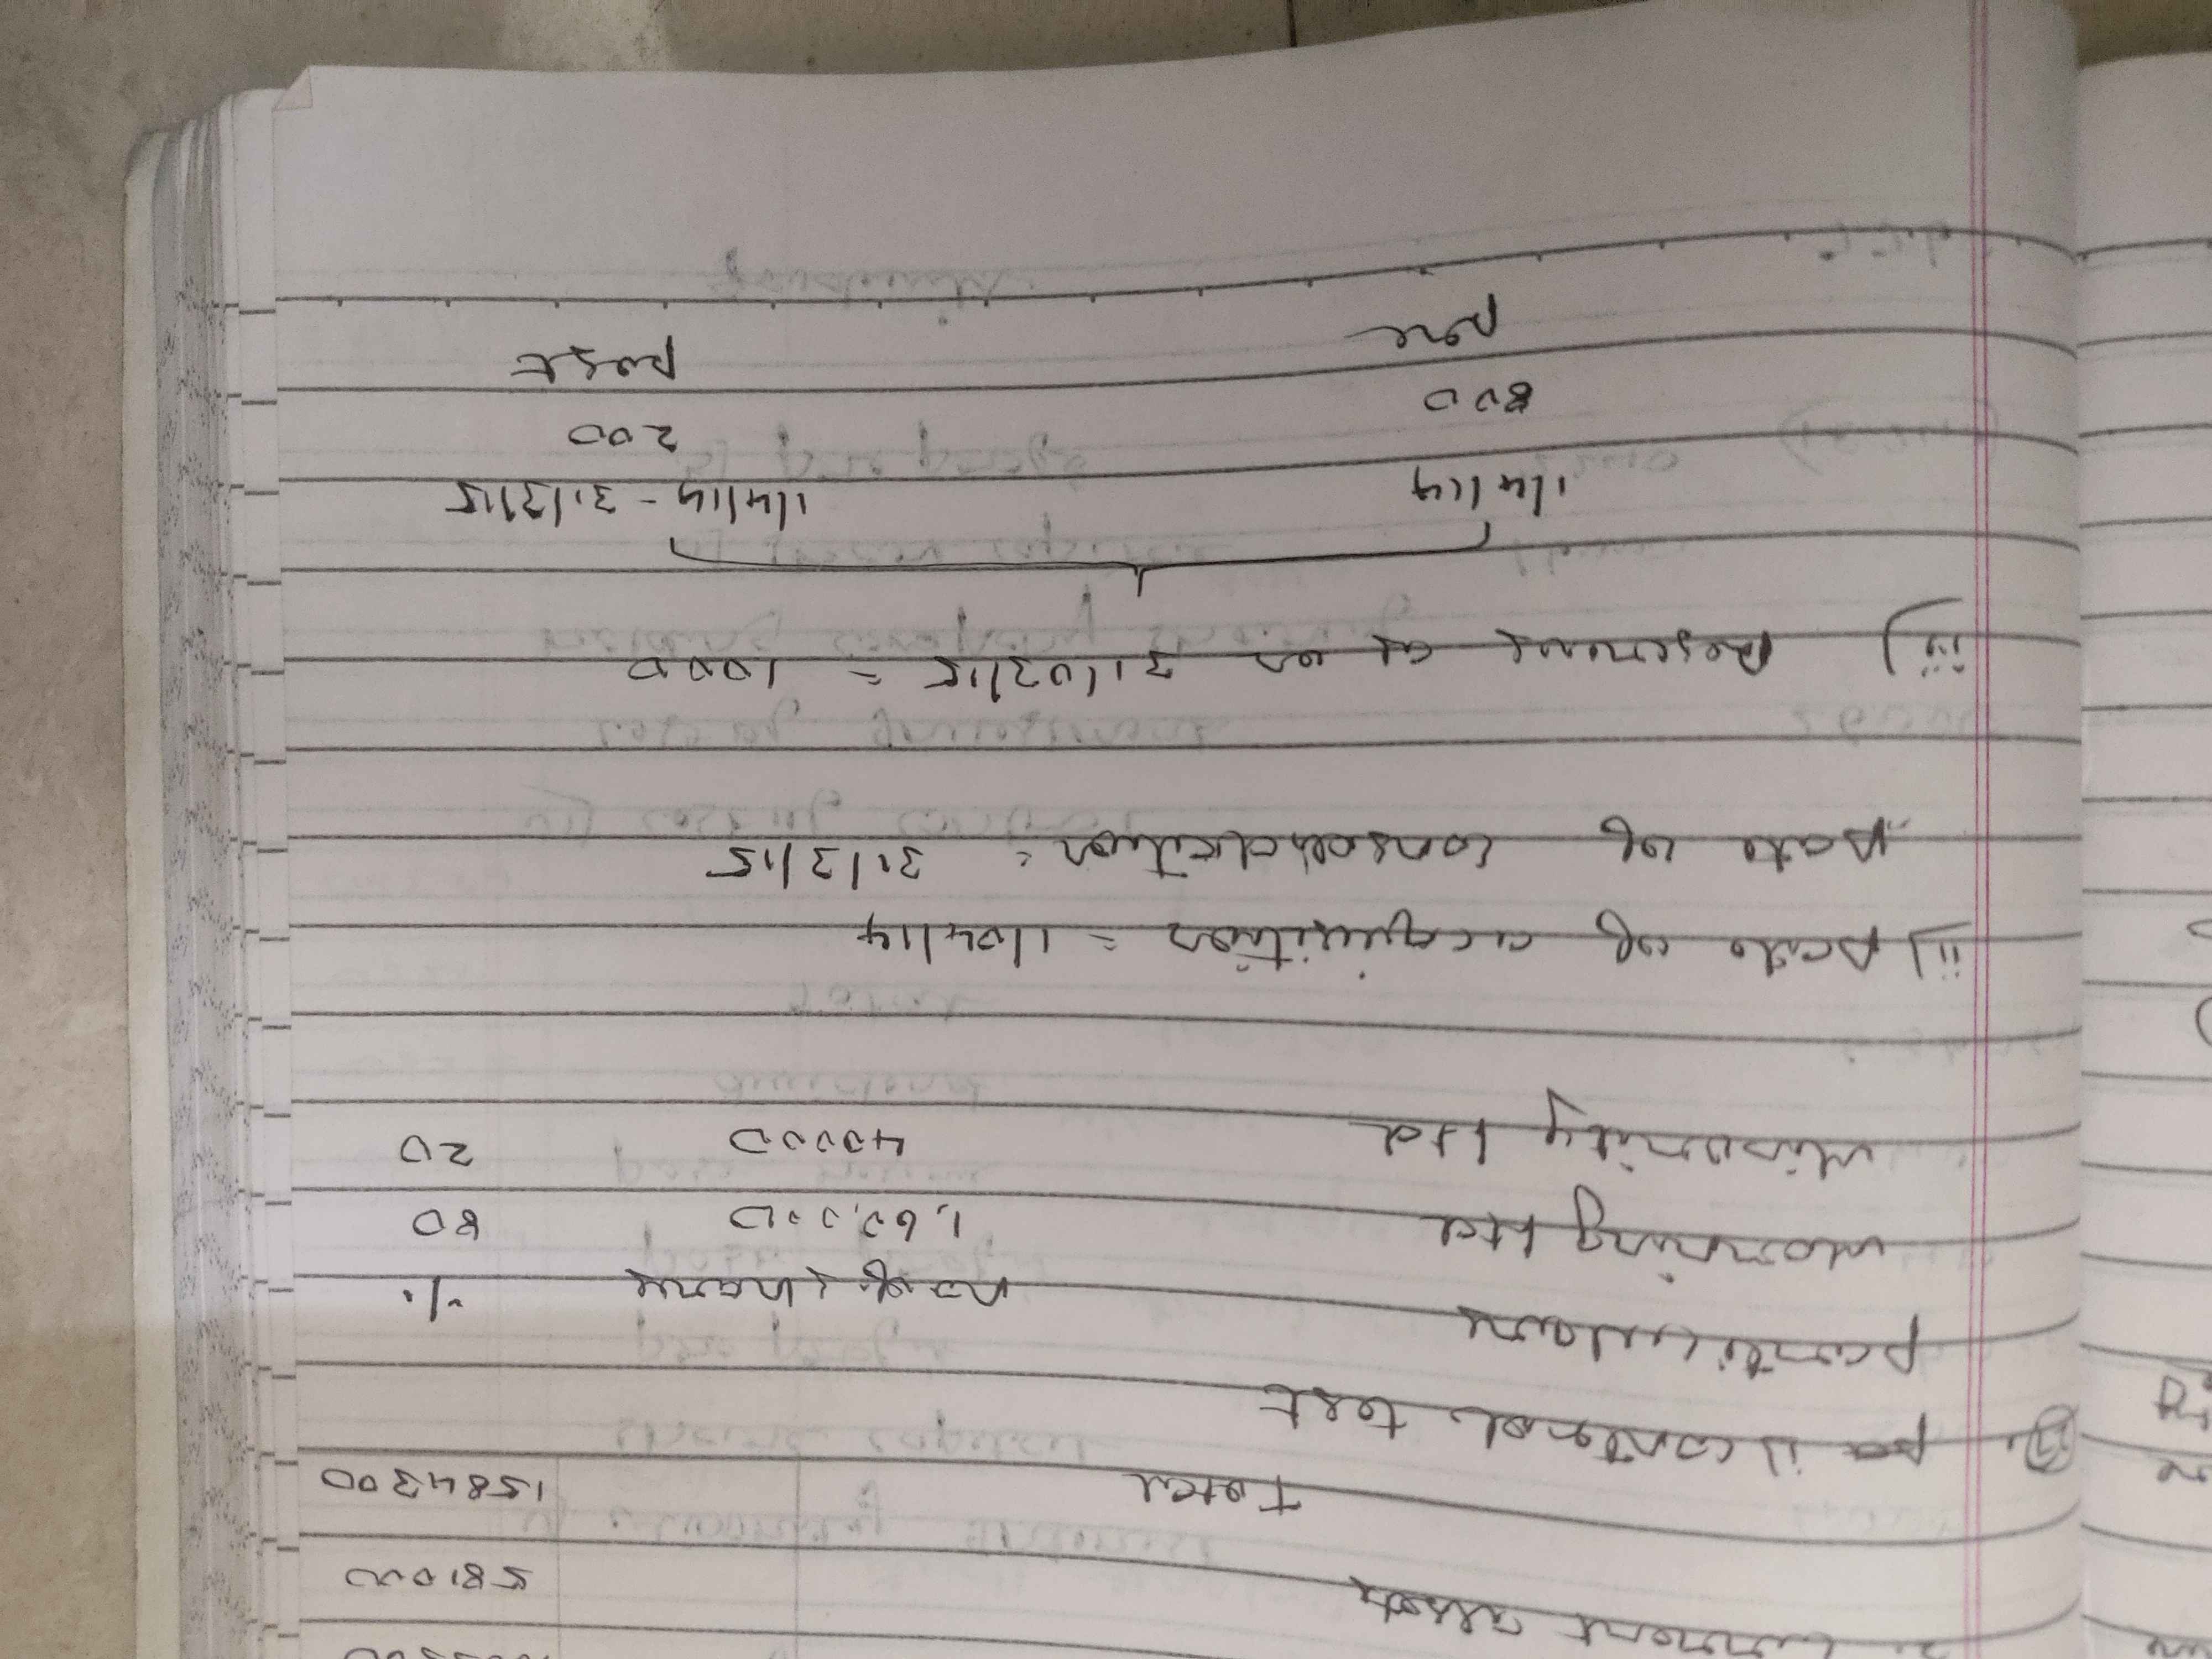 2. Current assets 581000
Total 1584300
i) control test
particulars no of share %
Morning Ltd 1,60,000 80
Minority Ltd 40000 20
ii) Date of acquisition = 1/04/14
Date of consolidation = 31/3/15
iii) as on 31/03/15 = 1000
1/4/14 1/4/14 - 31/3/15
800 200
post